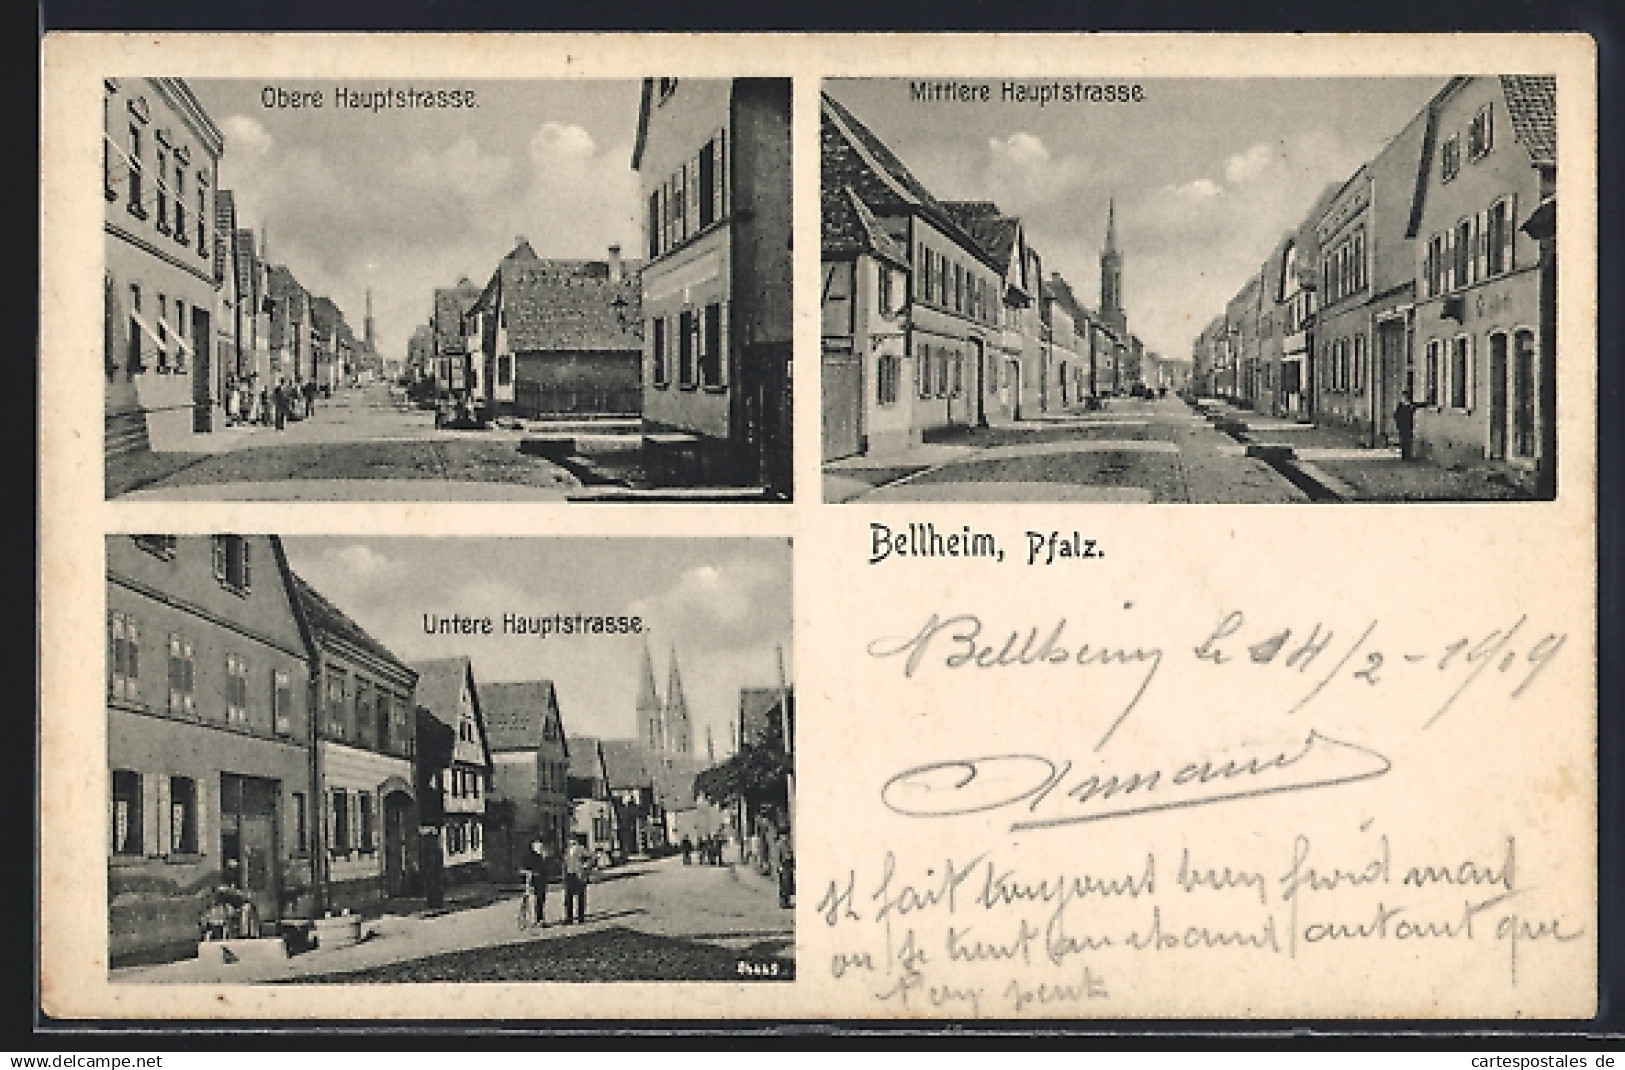 Obere Hauptstrasse.
Mittlere Hauptstrasse.
Untere Hauptstrasse.
Bellheim, Pfalz.
Bellheim le 14/2-1919
Armand
Il fait toujours bien froid mais
on se tient au chaud autant que
l'on peut
delcampe.com
cartespostales de